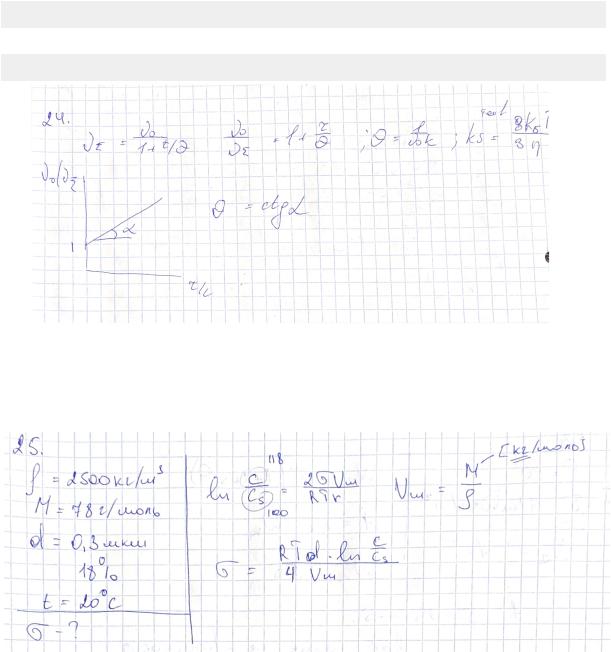 24.
ν_Σ = ν₀/(1+τ/θ)   ν₀/ν_Σ = 1+ τ/θ ; θ = 1/(ν₀k) ; ks = 8k_БT/3η
ν₀/ν_Σ
α
θ = ctgα
1
25.
ρ = 2500кг/м³
M = 78 г/моль
d = 0,3мкм
18%
t = 20°C
σ - ?
118
ln C/Cs = 2σVm/RTr
100
Vm = M/ρ
[кг/моль]
σ = RTd · ln C/Cs / 4 Vm